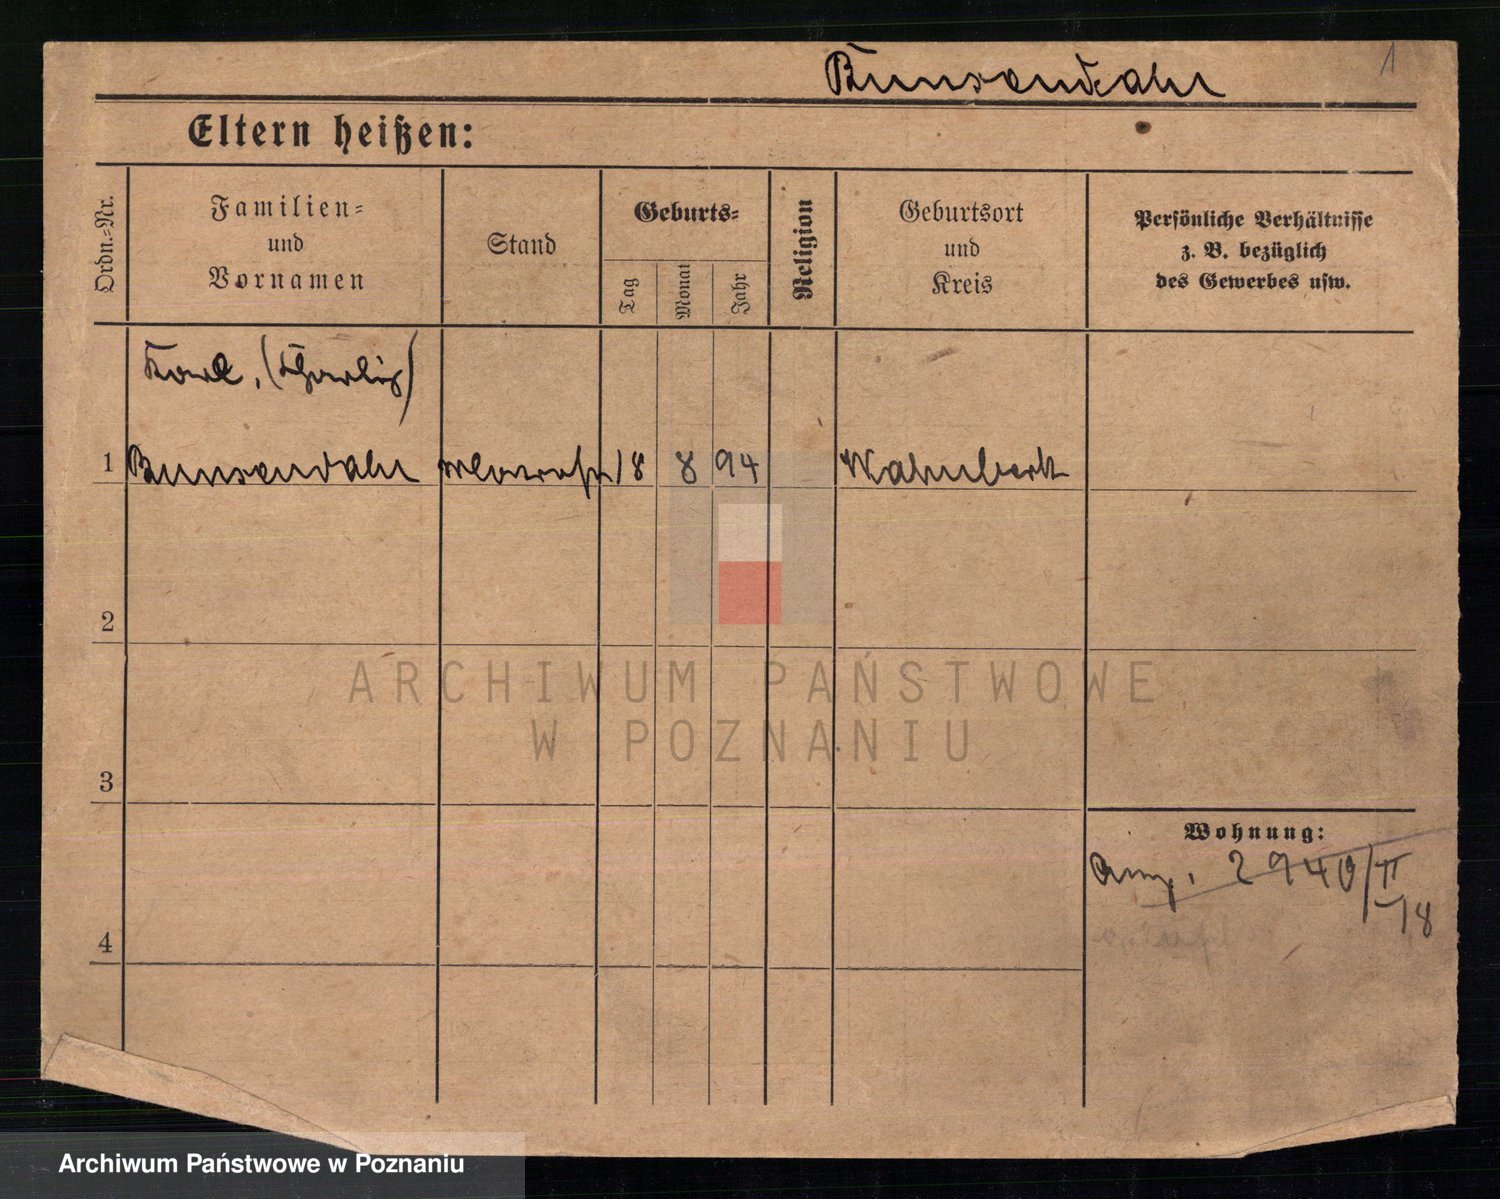 1
Eltern heißen:
Ordn.-Nr.
Familien-
und
Vornamen
Stand
Geburts-
Tag
Monat
Jahr
Religion
Geburtsort
und
Kreis
Persönliche Verhältnisse
z. B. bezüglich
des Gewerbes usw.
Karl,
1
18 8 94
2
3
4
Wohnung:
2940/II
-18
ARCHIWUM PAŃSTWOWE
W POZNANIU
Archiwum Państwowe w Poznaniu